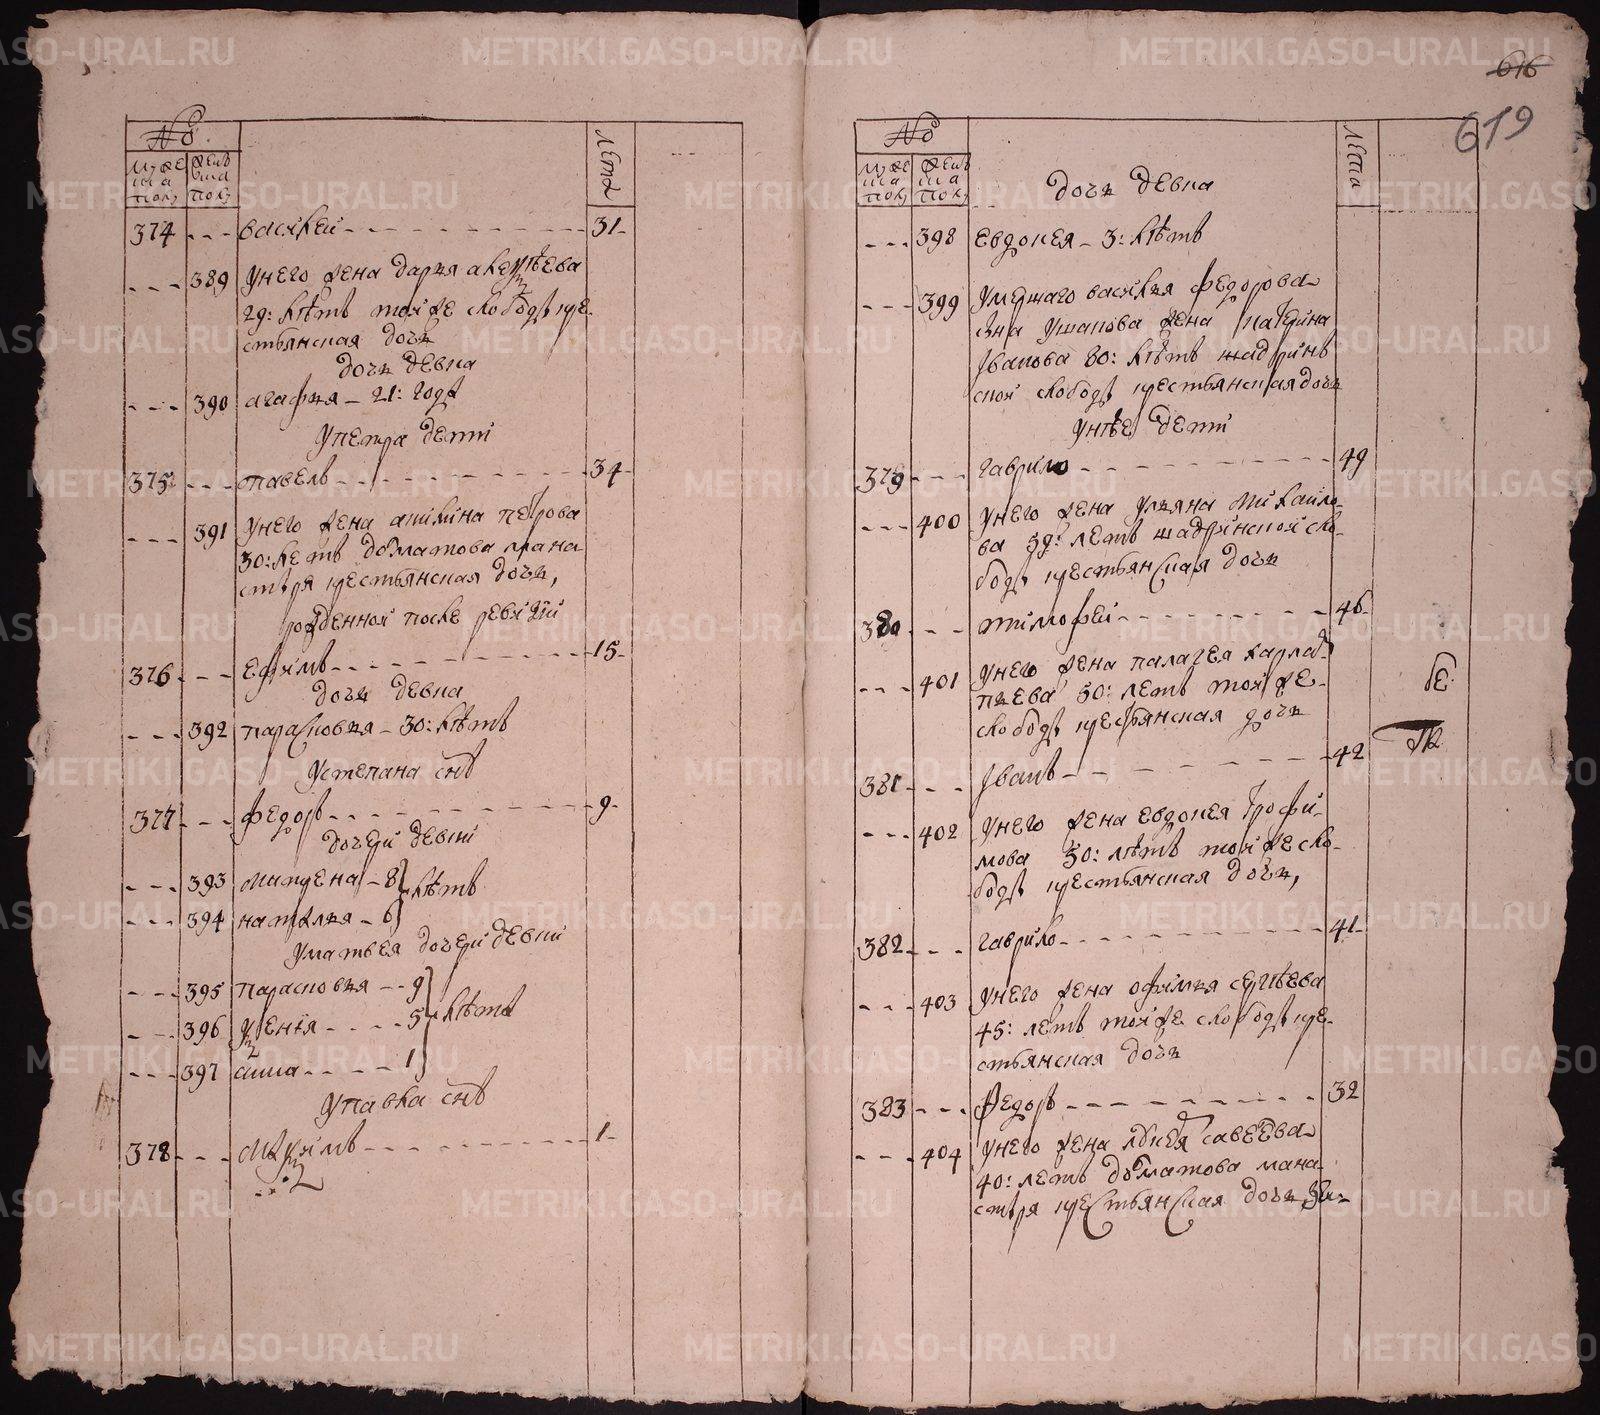 №
мужеска полу
женска полу
лета
374 --- василеи --- 31
--- 389 У него жена дарья
29: лѣтъ тояже слободы кре
стьянская дочь
дочь девка
--- 390 агафья - 21: году
У петра дети
375 --- павелъ --- 34
--- 391 У него жена акилина петрова
30: летъ доматова мана
стыря крестьянская дочь,
рожденной после ревизии
376 --- ефимъ --- 15
дочь девка
--- 392 парасковья - 30: лѣтъ
У степана снъ
377 --- федоръ --- 9
дочери девки
--- 393 матрена - 8 лѣтъ
--- 394 наталья - 6
У матвея дочери девки
--- 395 парасковья -- 9
--- 396 ксения ---- 5 лѣтъ
--- 397 анна ----- 1
У павла снъ
378 --- максимъ --- 1
616
619
№
мужеска полу
женска полу
лета
дочь девка
--- 398 евдокея - 3: лѣтъ
--- 399 Умершаго василья федорова
сна Ушакова жена катерина
Иванова 80: лѣтъ шадринъ
ской слободы крестьянская дочь
У нѣе дети
379 --- гаврило --- 49
--- 400 У него жена ульяна михаило
ва 59: летъ шадринской сло
боды крестьянская дочь
380 --- тимофеи --- 46
--- 401 У него жена палагея
50: летъ тояже
слободы крестьянская дочь
381 --- Иванъ --- 42
--- 402 У него жена евдокея трофи
мова 50: лѣтъ тояже сло
боды крестьянская дочь,
382 --- гаврило --- 41
--- 403 У него жена офимья сергѣева
45: летъ тояже слободы кре
стьянская дочь
383 --- федоръ --- 32
--- 404 У него жена
40: летъ доматова мана
стыря крестьянская дочь
METRIKI.GASO-URAL.RU